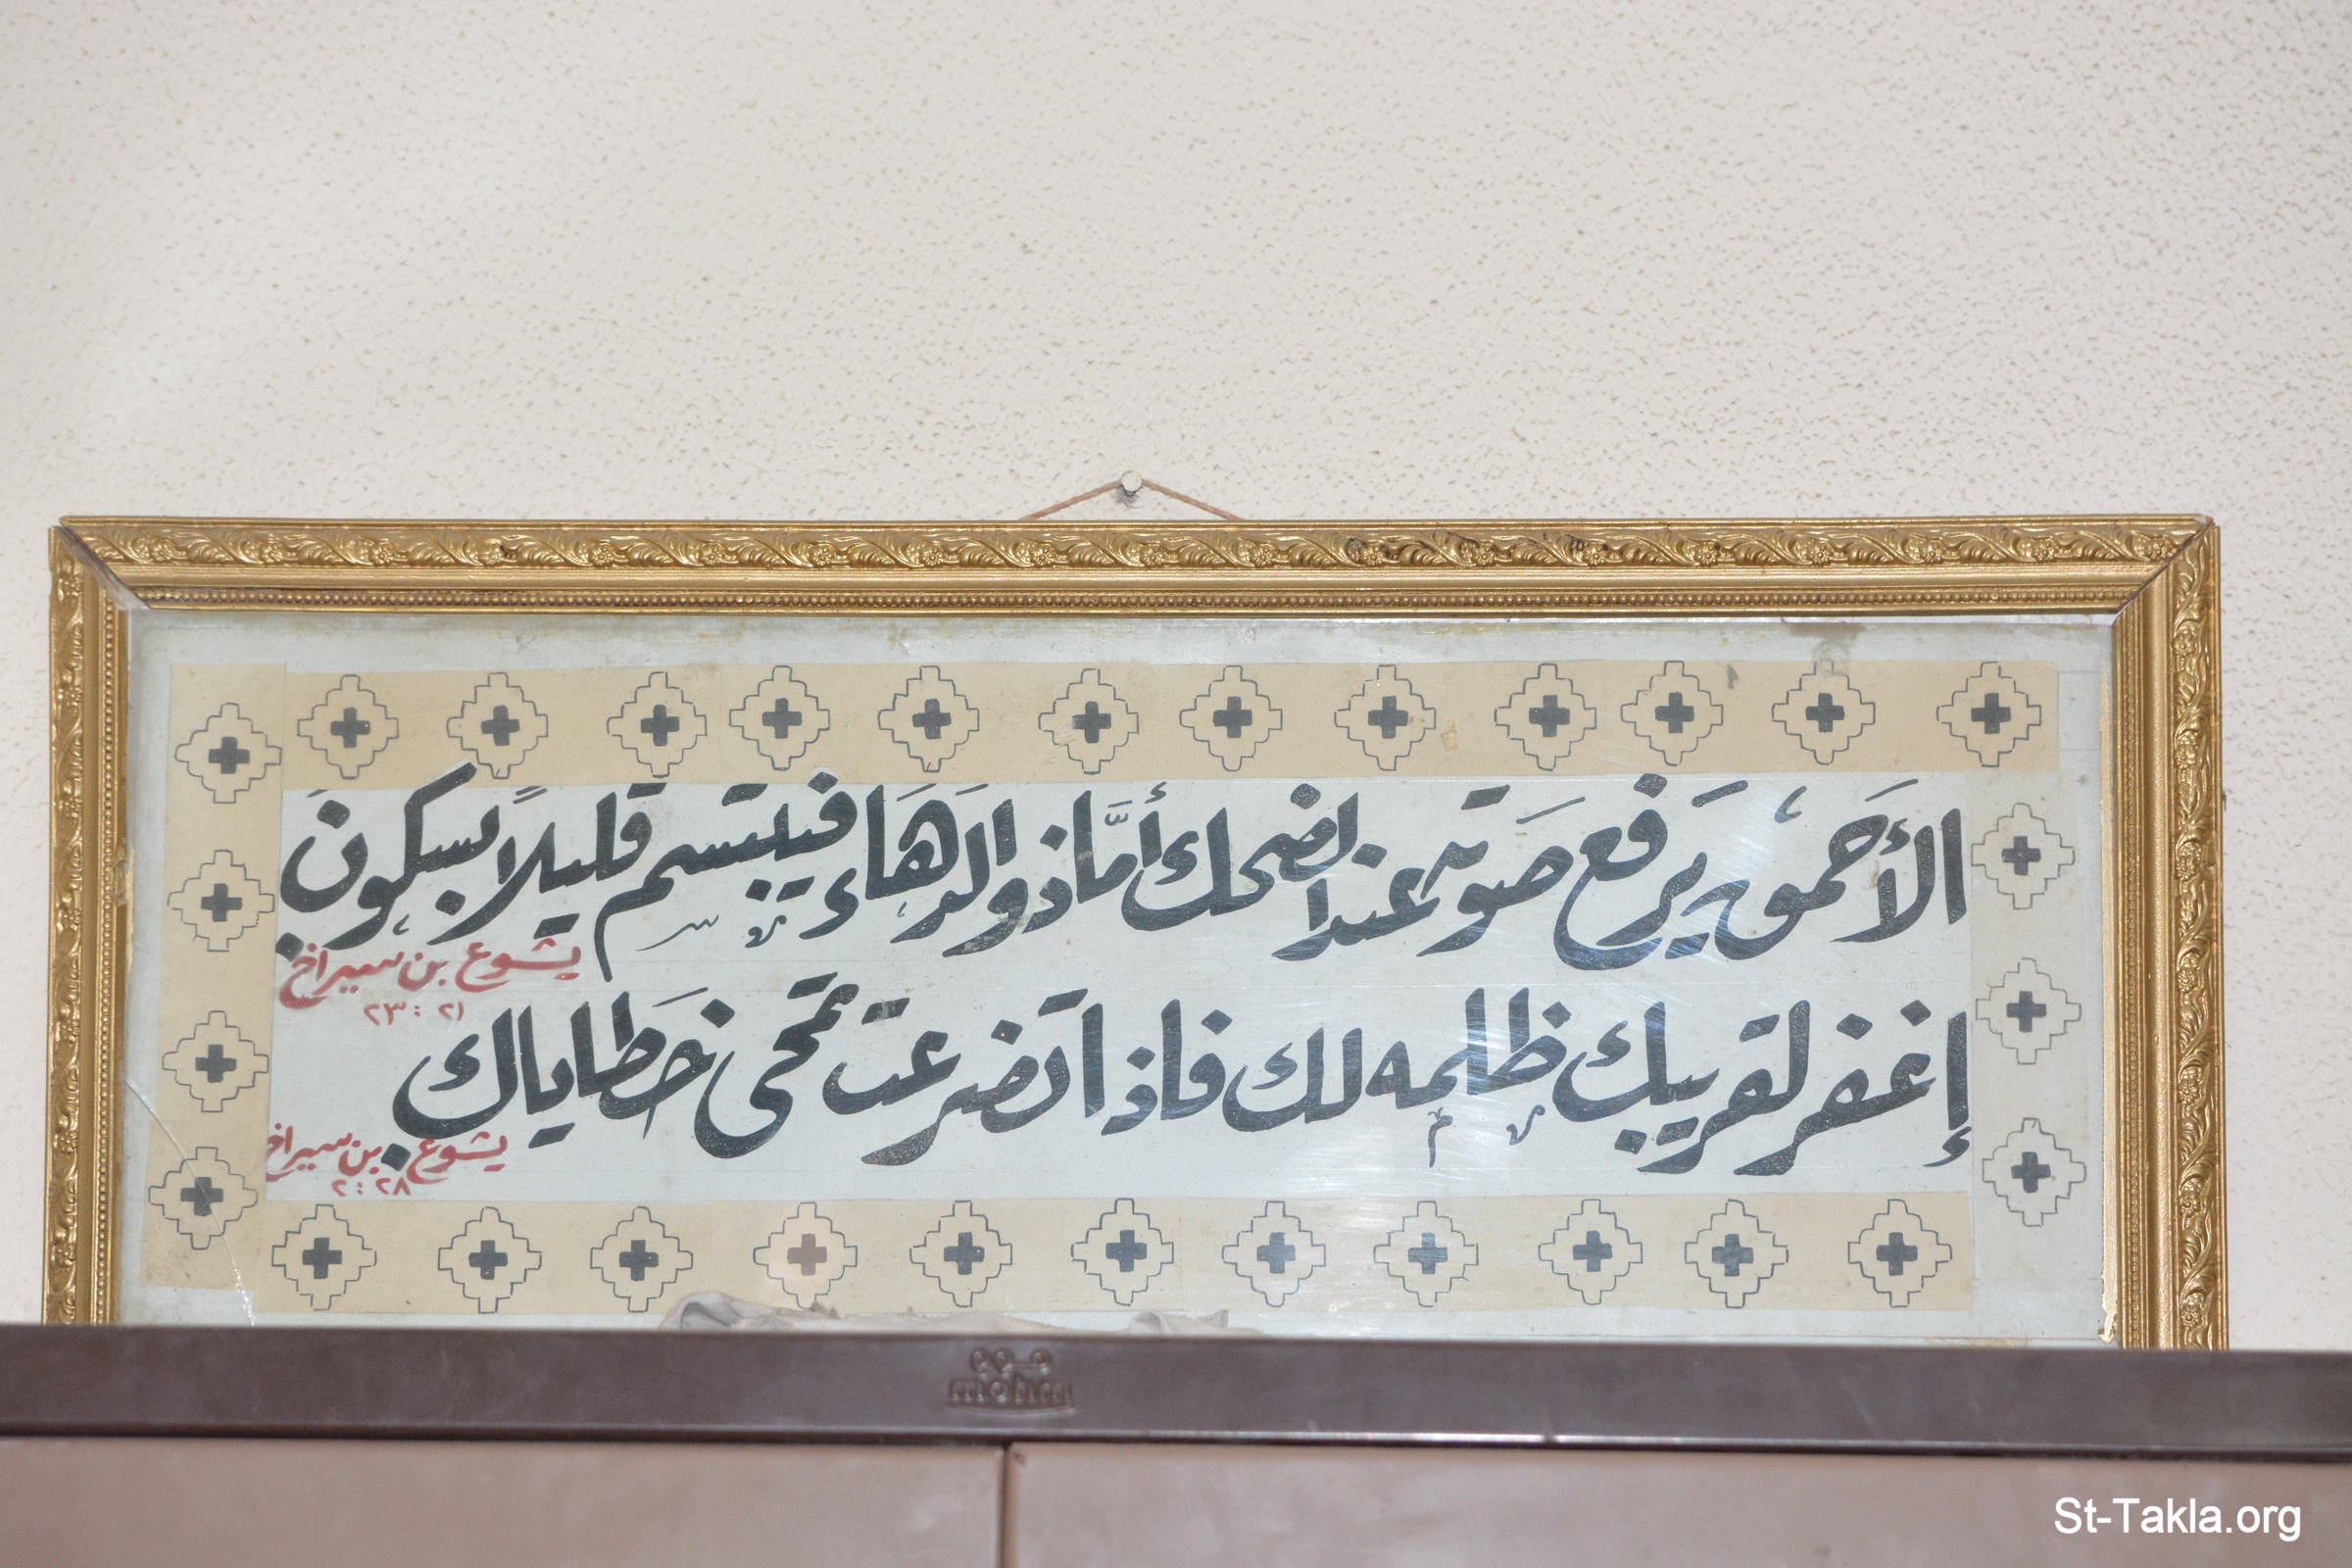 الأَحمق يَرفع صَوته عند الضحك أمَّا ذو الدَهَاء فيبتسم قليلاً بسكون
يشوع بن سيراخ
٢١ : ٢٣
إغفر لقريبك ظلمه لك فاذا تضرعت تمحى خَطاياك
يشوع بن سيراخ
٢٨ : ٢
mohm
St-Takla.org